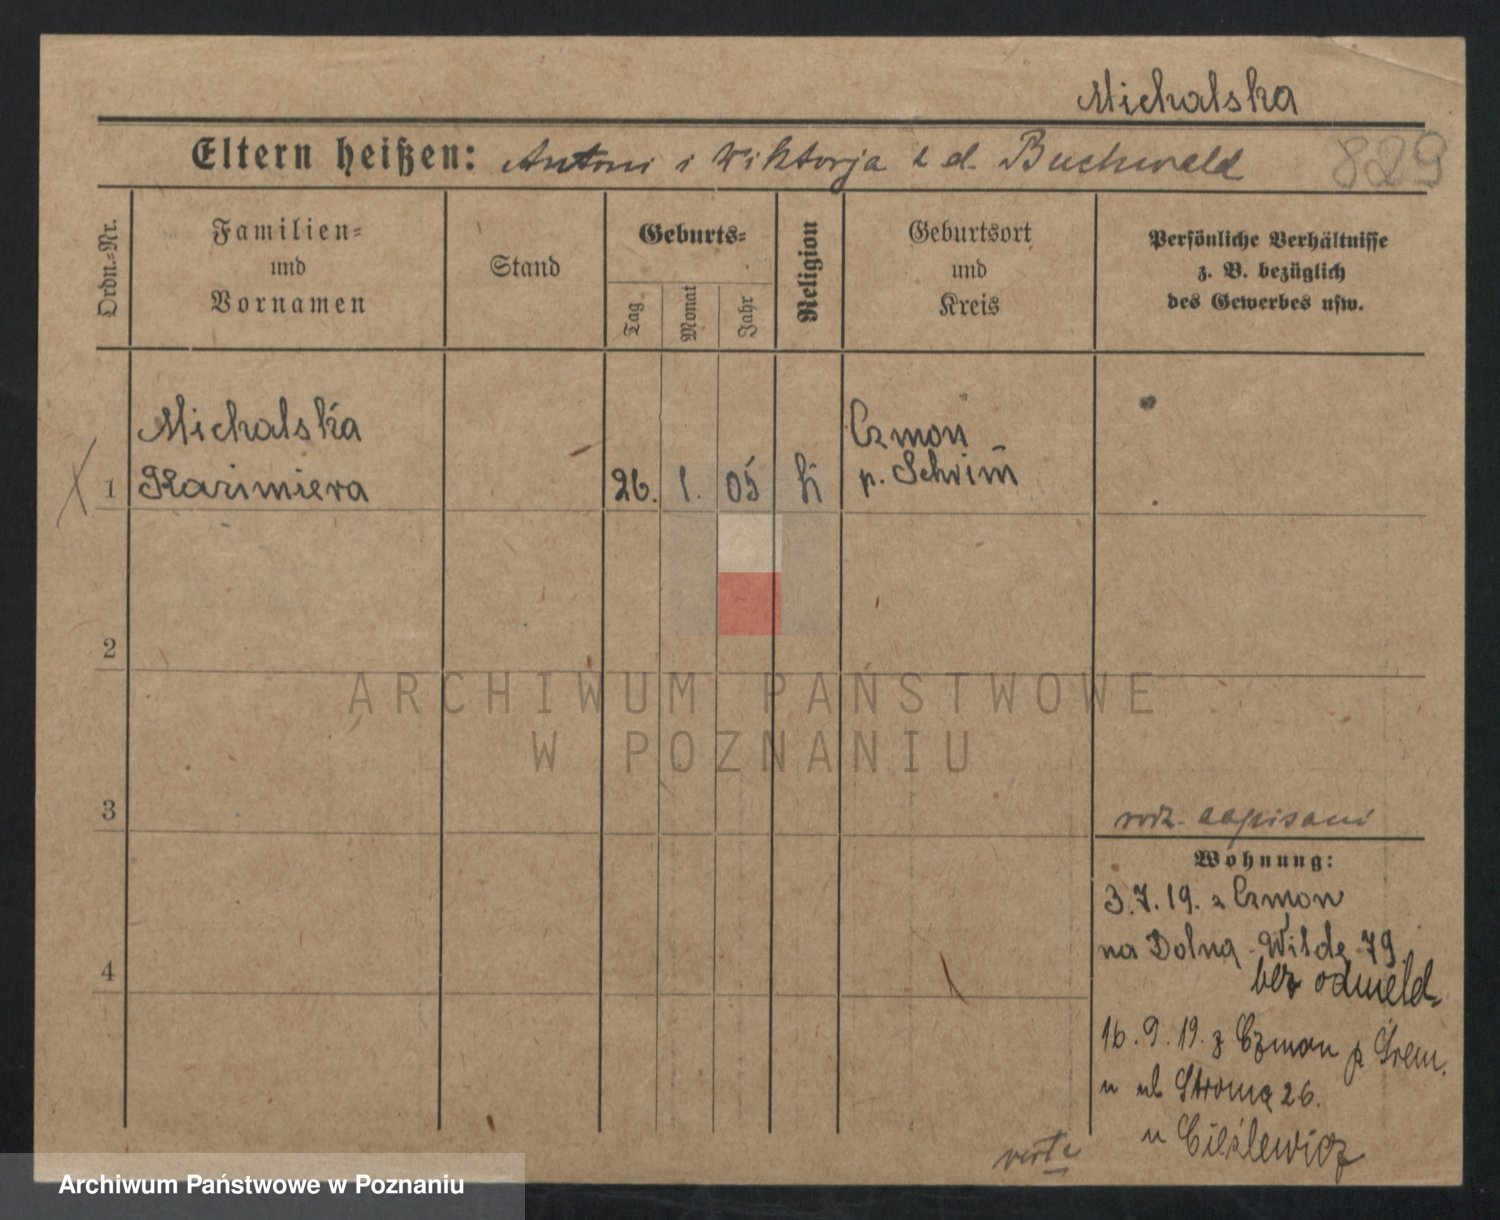 Michalska
Eltern heißen: Antoni i Wiktorja z d. Buchwald
829
Ordn.-Nr.
Familien-
und
Vornamen
Stand
Geburts-
Tag
Monat
Jahr
Religion
Geburtsort
und
Kreis
Persönliche Verhältnisse
z. B. bezüglich
des Gewerbes usw.
Michalska
1 Kazimiera
26. 1. 05 k
Czmoń
p. Schrim
2
3
4
rodz. zapisani
Wohnung:
3.7.19. z Czmoń
na Dolną Wildę 79
bez odmeld.
16.9.19. z Czmoń p Śrem.
n ul Stromą 26.
u Cieślewicz
verte
ARCHIWUM PAŃSTWOWE
W POZNANIU
Archiwum Państwowe w Poznaniu